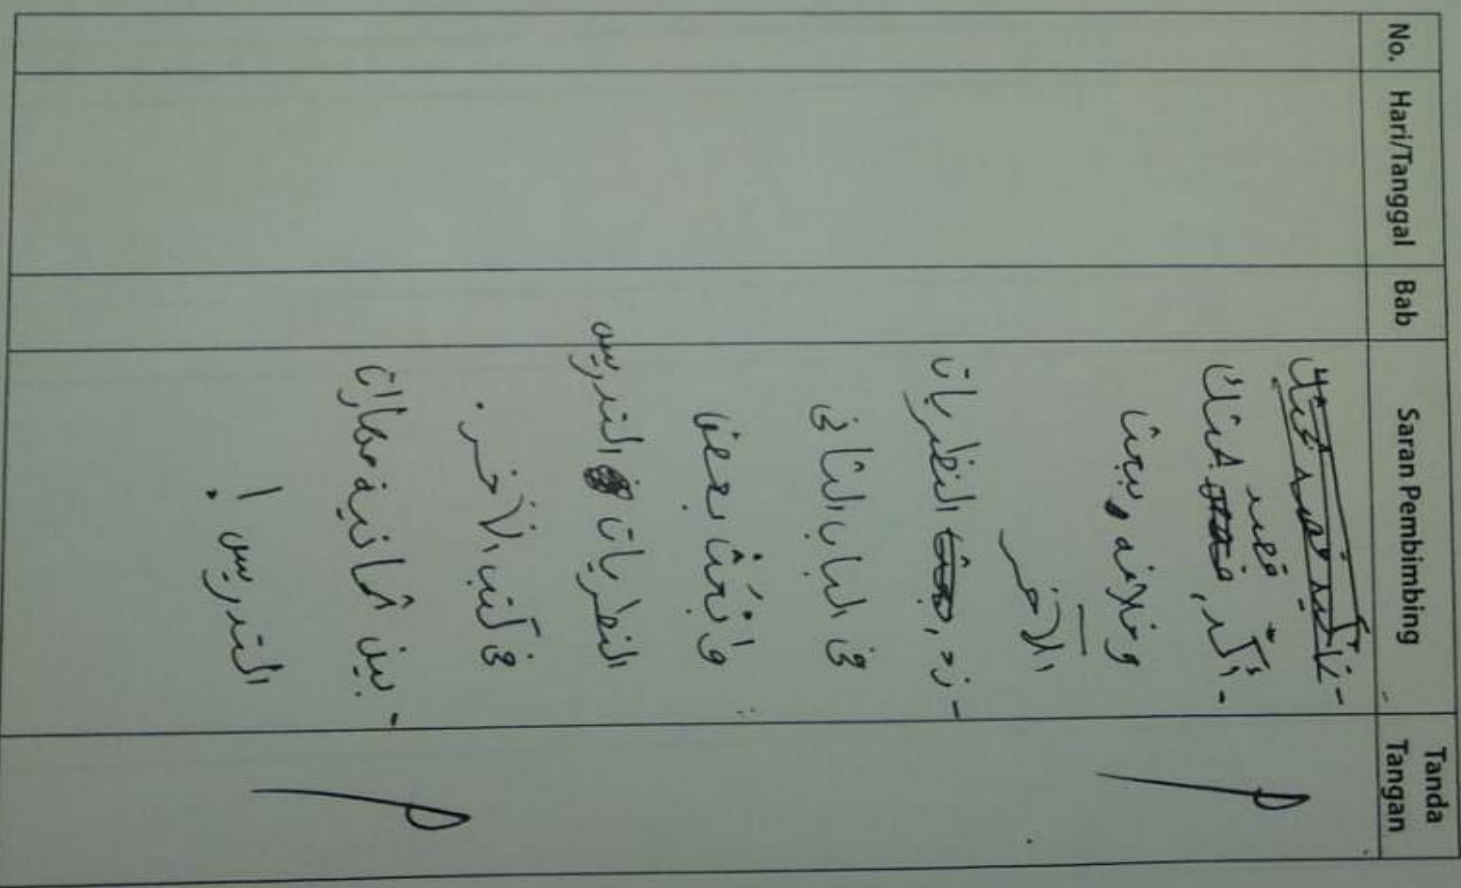 No. Hari/Tanggal Bab Saran Pembimbing Tanda Tangan
- تأكيد قصد بحثك
- أكّد, قصد بحثك
وخلافه, ببحث
الآخر
- زد, بحث النظريات
فى الباب الثانى
وابْحَثْ بعض
النظريات التدريس
فى كتب الأخر.
- بين ثمانية مهارات
التدريس !